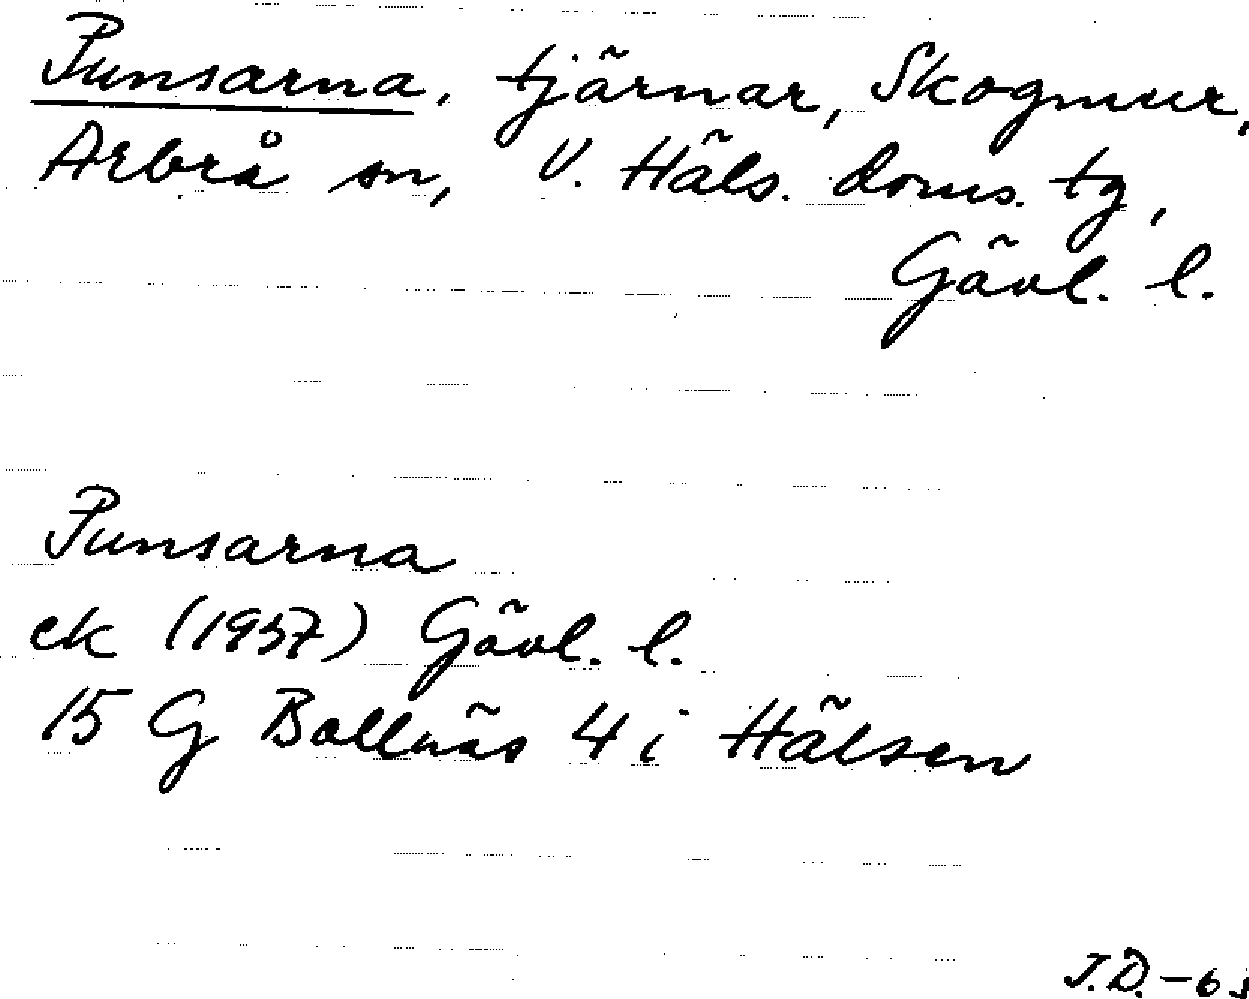 Punsarna, tjärnar, Skogmur,
Arbrå sn, V. Häls. doms. tg,
Gävl. l.
Punsarna
ek (1957) Gävl. l.
15 G Bollnäs 4 i Hälsen
J.D. -63